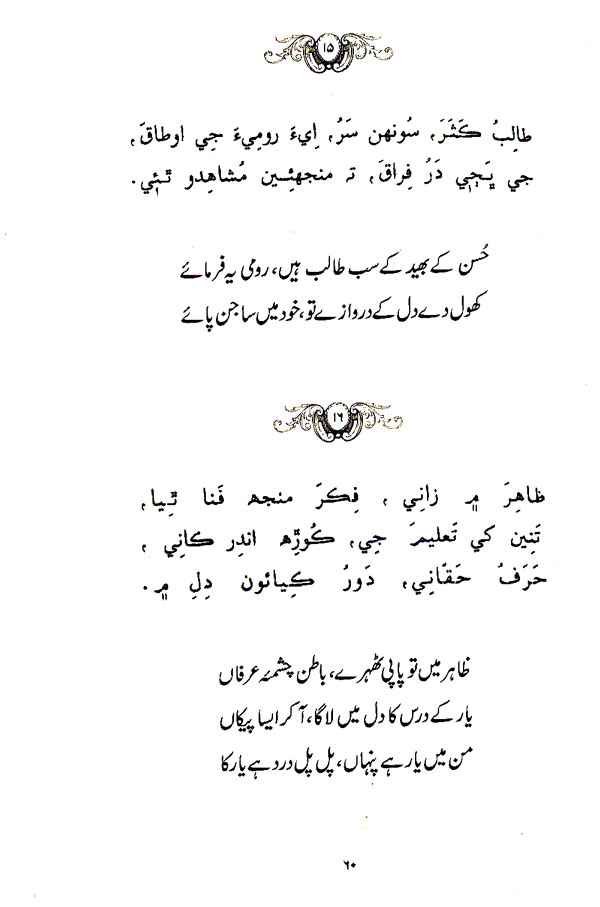 ۱۵
طالِبُ ڪَثَرَ، سُونهن سَرُ، اِيءَ روميءَ جِي اوطاقَ،
جي ڀَڃِي دَرُ فِراقَ، تہ منجهئِين مُشاهِدو ٿئِي.
حُسن کے بھید کے سب طالب ہیں، رومی یہ فرمائے
کھول دے دل کے دروازے تو، خود میں ساجن پائے
۱٦
ظاهِرَ ۾ زانِي، فِڪرَ منجهہ فَنا ٿِيا،
تَنِين کي تَعلِيمَ جِي، ڪُوڙهہ اندِر ڪانِي،
حَرَفُ حَقّانِي، دَورُ ڪِيائون دِلِ ۾.
ظاہر میں تو پاپی ٹھہرے، باطن چشمئہ عرفاں
یار کے درس کا دل میں لاگا، آ کر ایسا پیکاں
من میں یار ہے پنہاں، پل پل درد ہے یار کا
٦۰